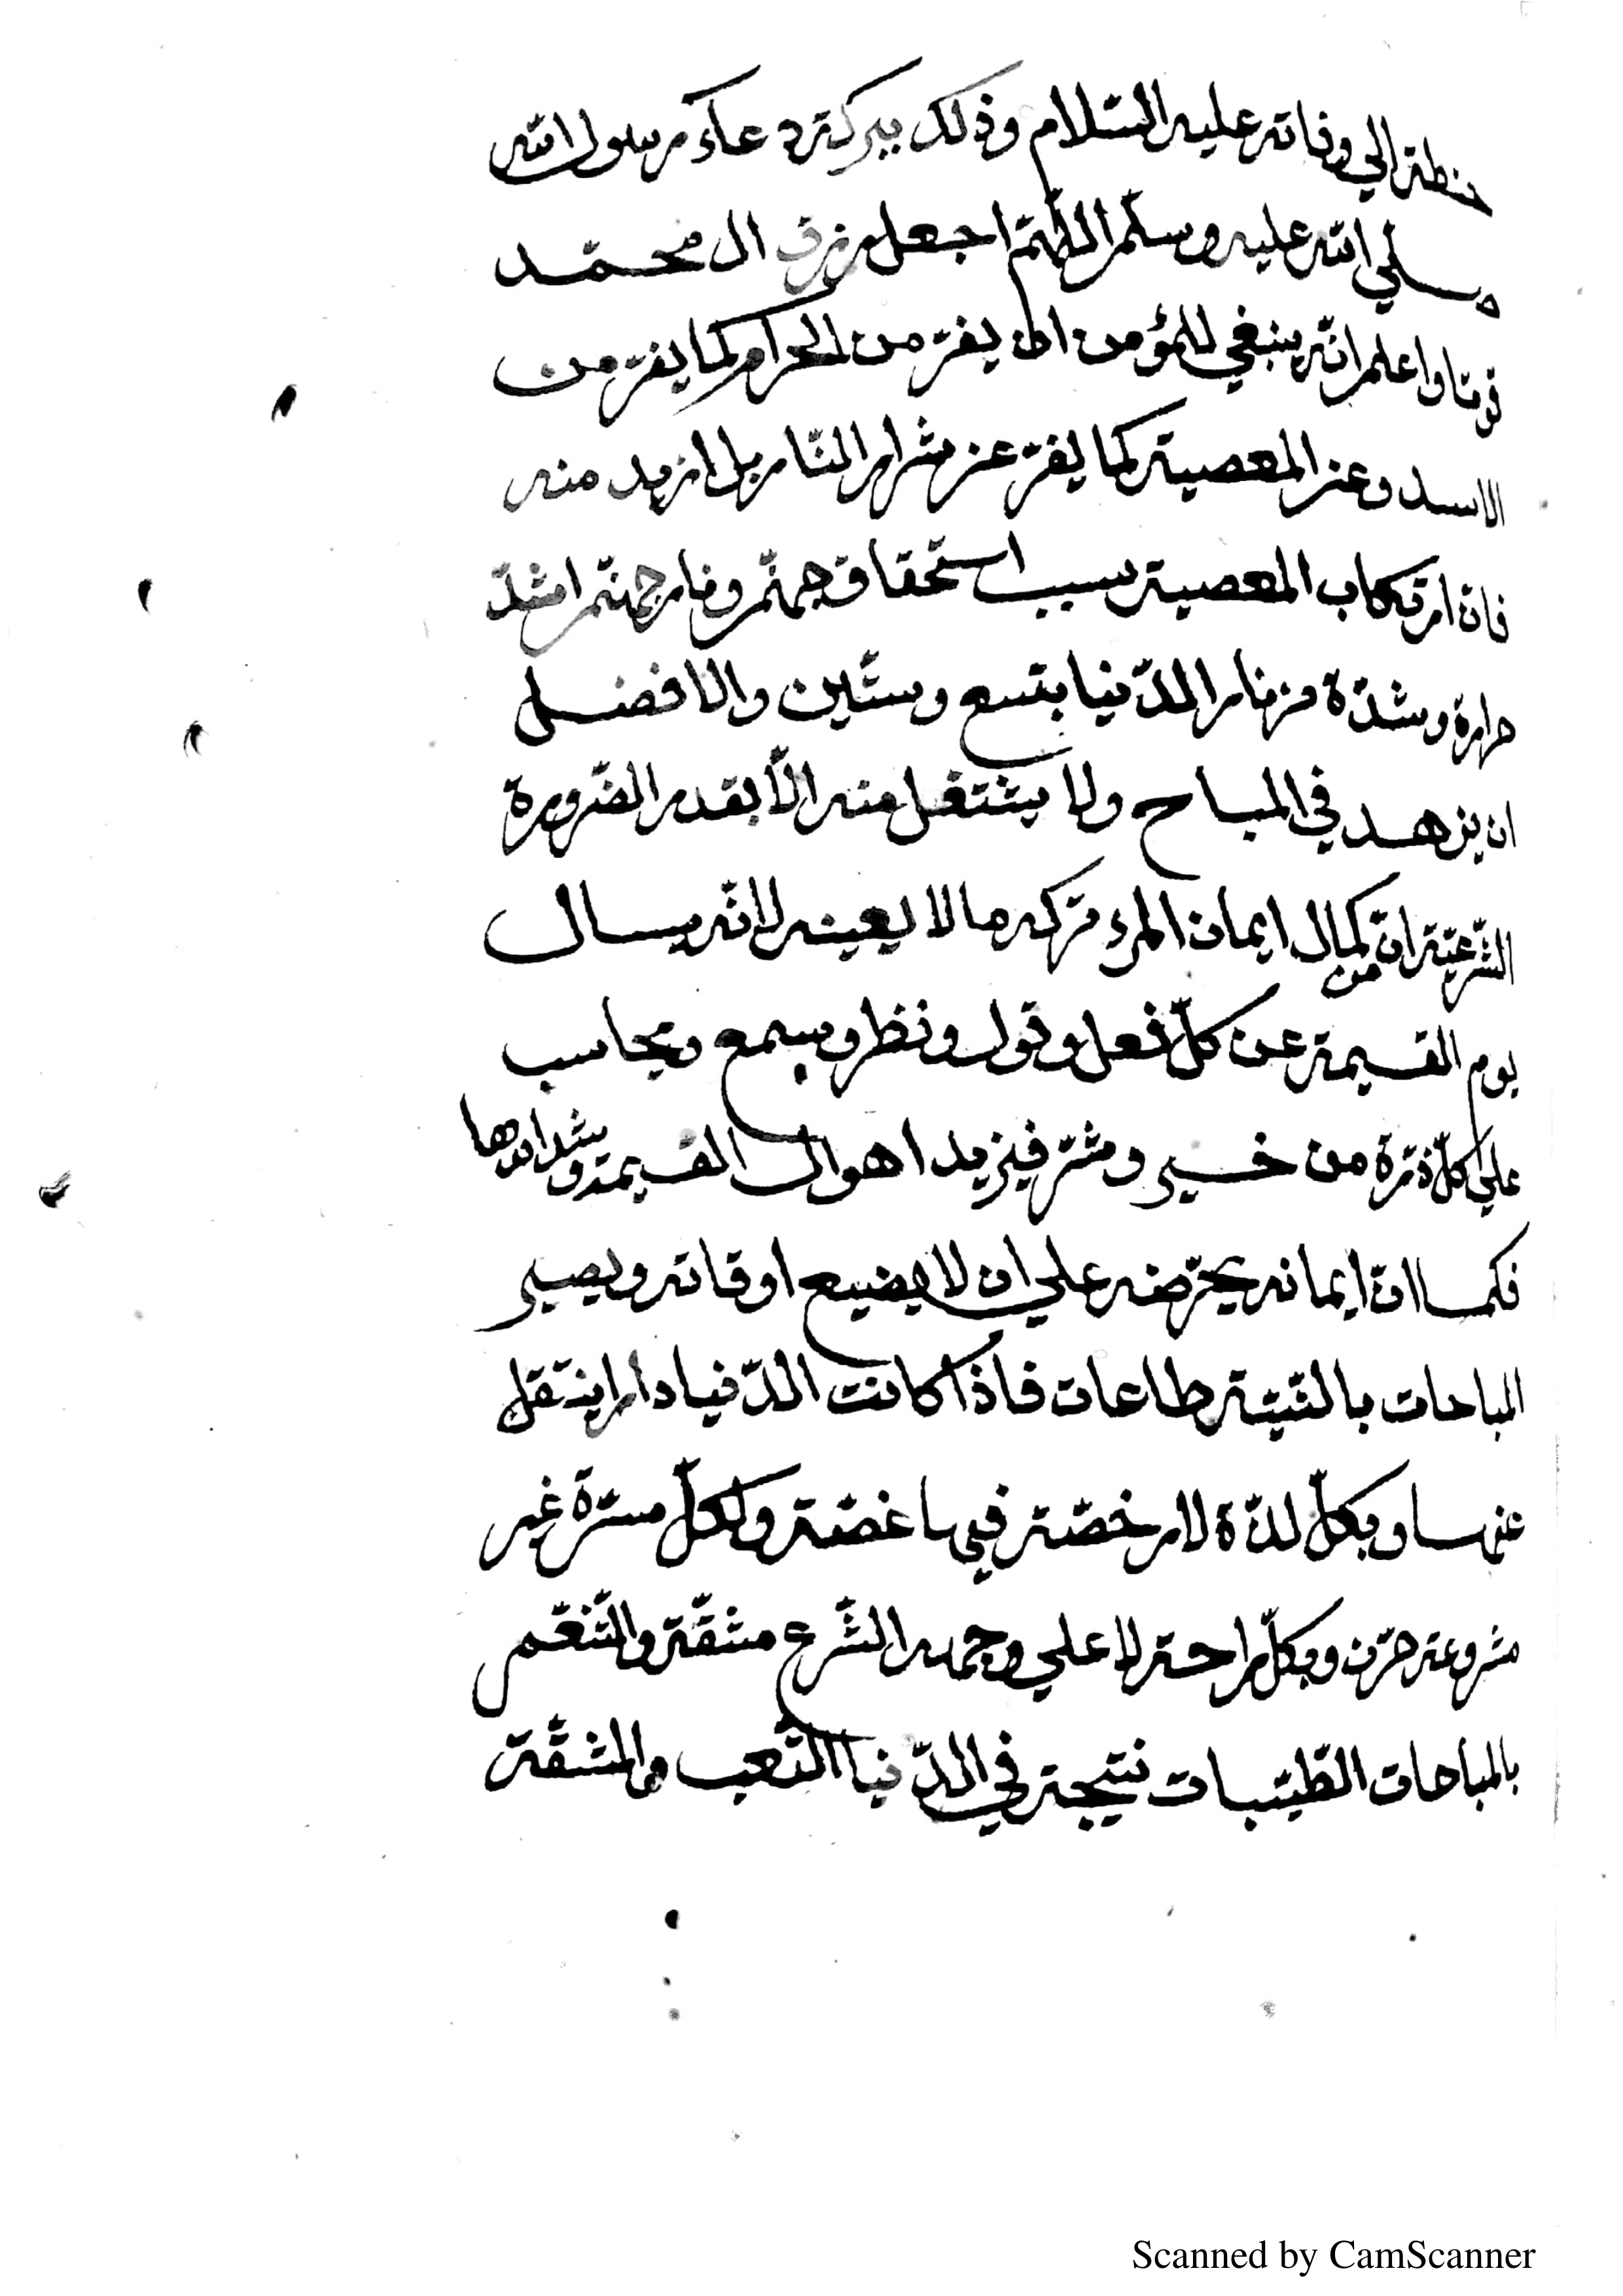 حنطة الي وفاته عليه السّلام وذلك ببركة دعاء رسول الله
صلي الله عليه وسلّم اللّهمّ اجعل رزق ال محمّد
قوتا واعلم انّه ينبغي للمؤمن ان يفرّ من الحرام كما يفرّ من
الاسد وعن المعصية كما يفرّ عن شرار النّار بل ازيد منه
فانّ ارتكاب المعصية سبب استحقاق جهنّم ونار جهنّم اشدّ
حرارة وشدّة من نار الدّنيا بتسع وستّين والافضل
ان يزهد في المباح ولا يشتغل منه الّا بقدر الضّرورة
الشّرعيّة انّ من كمال ايمان المرء تركه ما لا يعينه لانّه يسال
يوم القيمة عن كلّ فعل وقول ونظر وسمع ويحاسب
علي كلّ ذرّة من خير وشرّ فيزيد اهوال القيمة وشدايدها
فكما انّ ايمانه يحرّضه علي ان لا يضيع اوقاته ويصير
المباحات بالنّيّة طاعات فاذا كانت الدّنيا دارا ينتقل
عنها وبكلّ لذّة لا رخصّة فيها غصّة ولكلّ مسرّة غير
مشروعة حزن وبكلّ راحة لا علي وجه الشّرع مشقّة والتّنعّم
بالمباحات الطّيّبات نتيجة في الدّنيا التّعب والمشقّة
Scanned by CamScanner